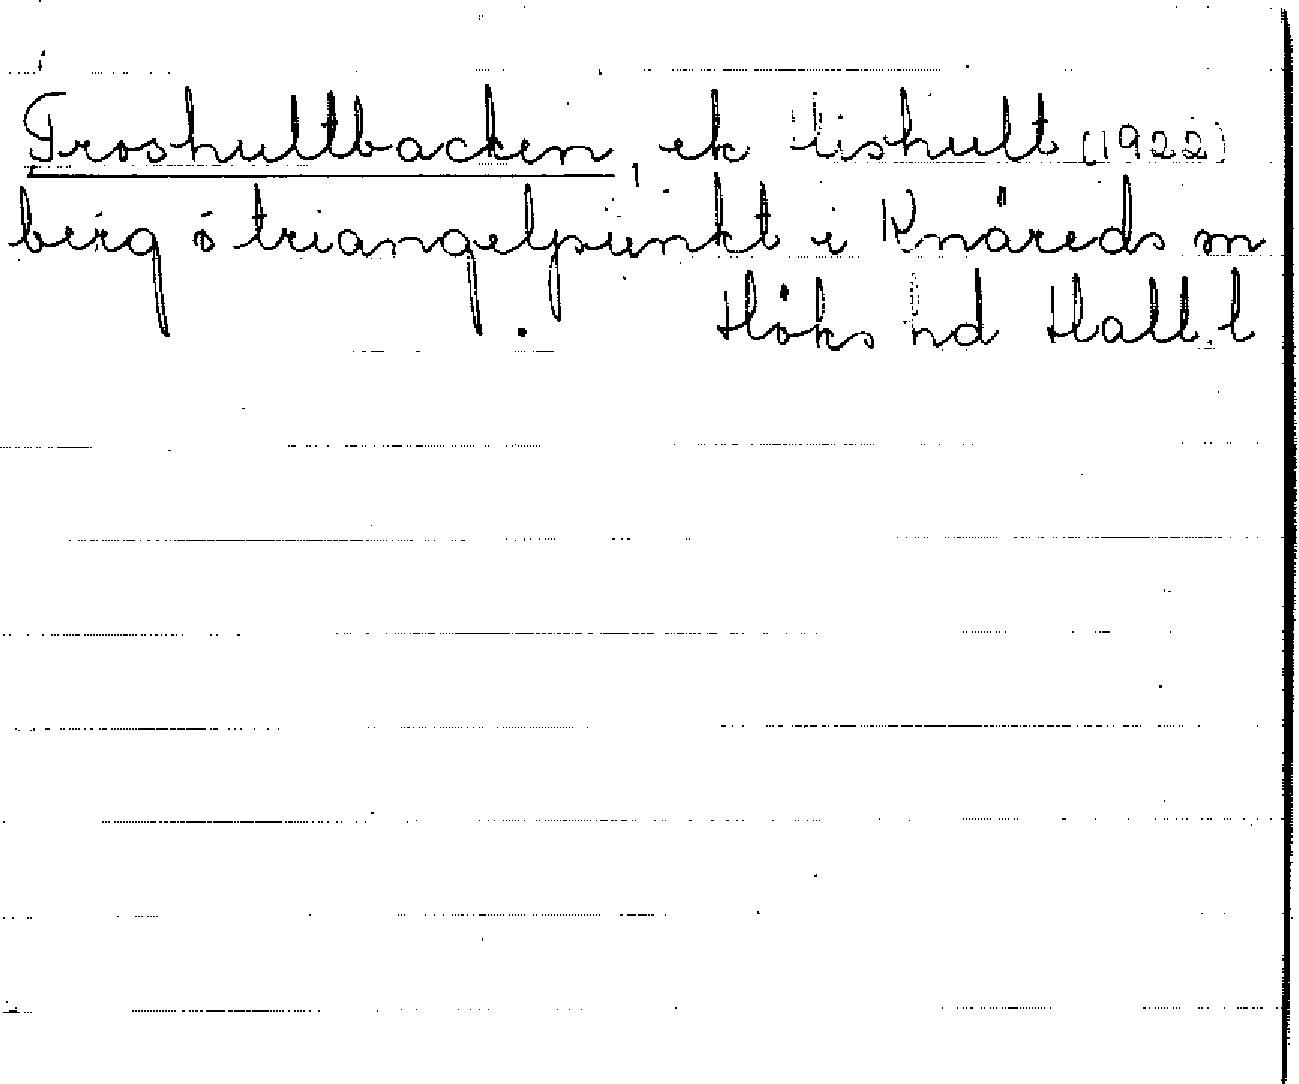 Froshultbacken, ek lishult (1922)
berg o triangelpunkt i Knäreds sn
Höks hd Hall. l